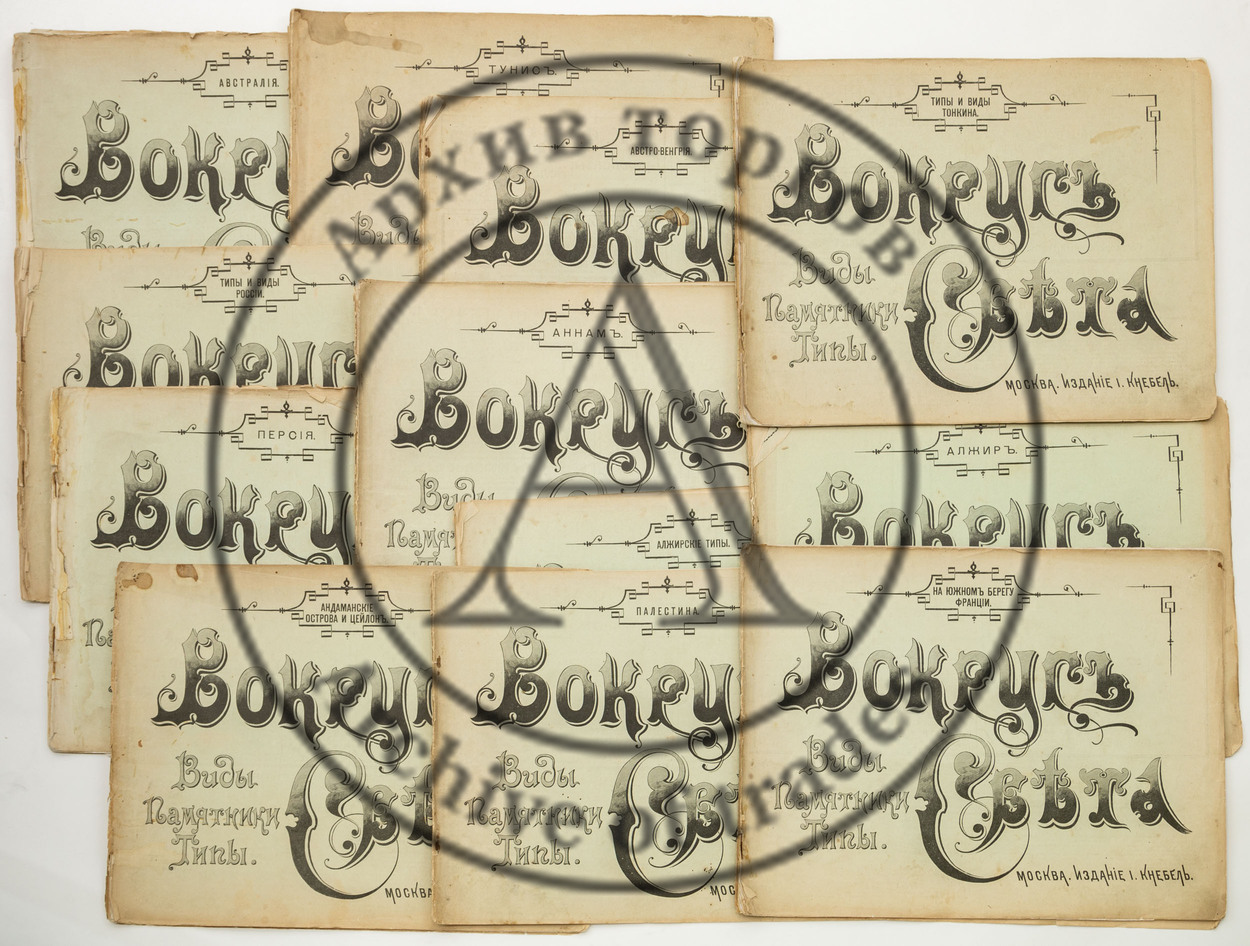 АВСТРАЛІЯ.
Вокру
Виды
ТУНИСЪ.
Во
Виды
АВСТРО-ВЕНГРІЯ.
Вокру
ТИПЫ И ВИДЫ
ТОНКИНА.
Вокругъ
Свѣта
Виды
Памятники
Типы.
МОСКВА. ИЗДАНІЕ І. КНЕБЕЛЬ.
ТИПЫ И ВИДЫ
РОССІИ.
Вокруг
АННАМЪ.
Вокругъ
Виды
Памят
ПЕРСІЯ.
Вокру
Па
АЛЖИРЪ.
Вокругъ
АЛЖИРСКІЕ ТИПЫ.
АНДАМАНСКІЕ
ОСТРОВА И ЦЕЙЛОНЪ.
Вокру
Свѣ
Виды
Памятники
Типы.
МОСКВА
ПАЛЕСТИНА.
Вокру
Свѣ
Виды
Памятники
Типы.
МОС
НА ЮЖНОМЪ БЕРЕГУ
ФРАНЦІИ.
Вокругъ
Свѣта
Виды
Памятники
Типы.
МОСКВА. ИЗДАНІЕ І. КНЕБЕЛЬ.
Архив торгов
А